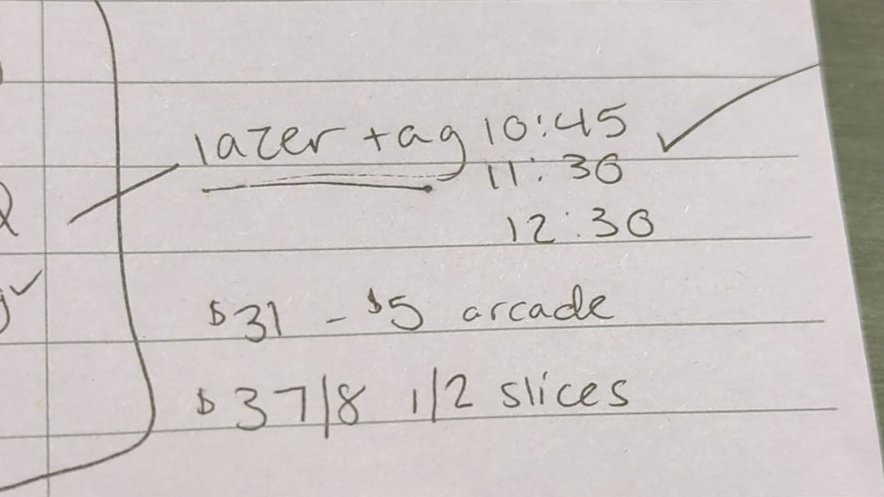 lazer tag 10:45 ✓
11:30
12:30
$31 - $5 arcade
$37/8 1/2 slices